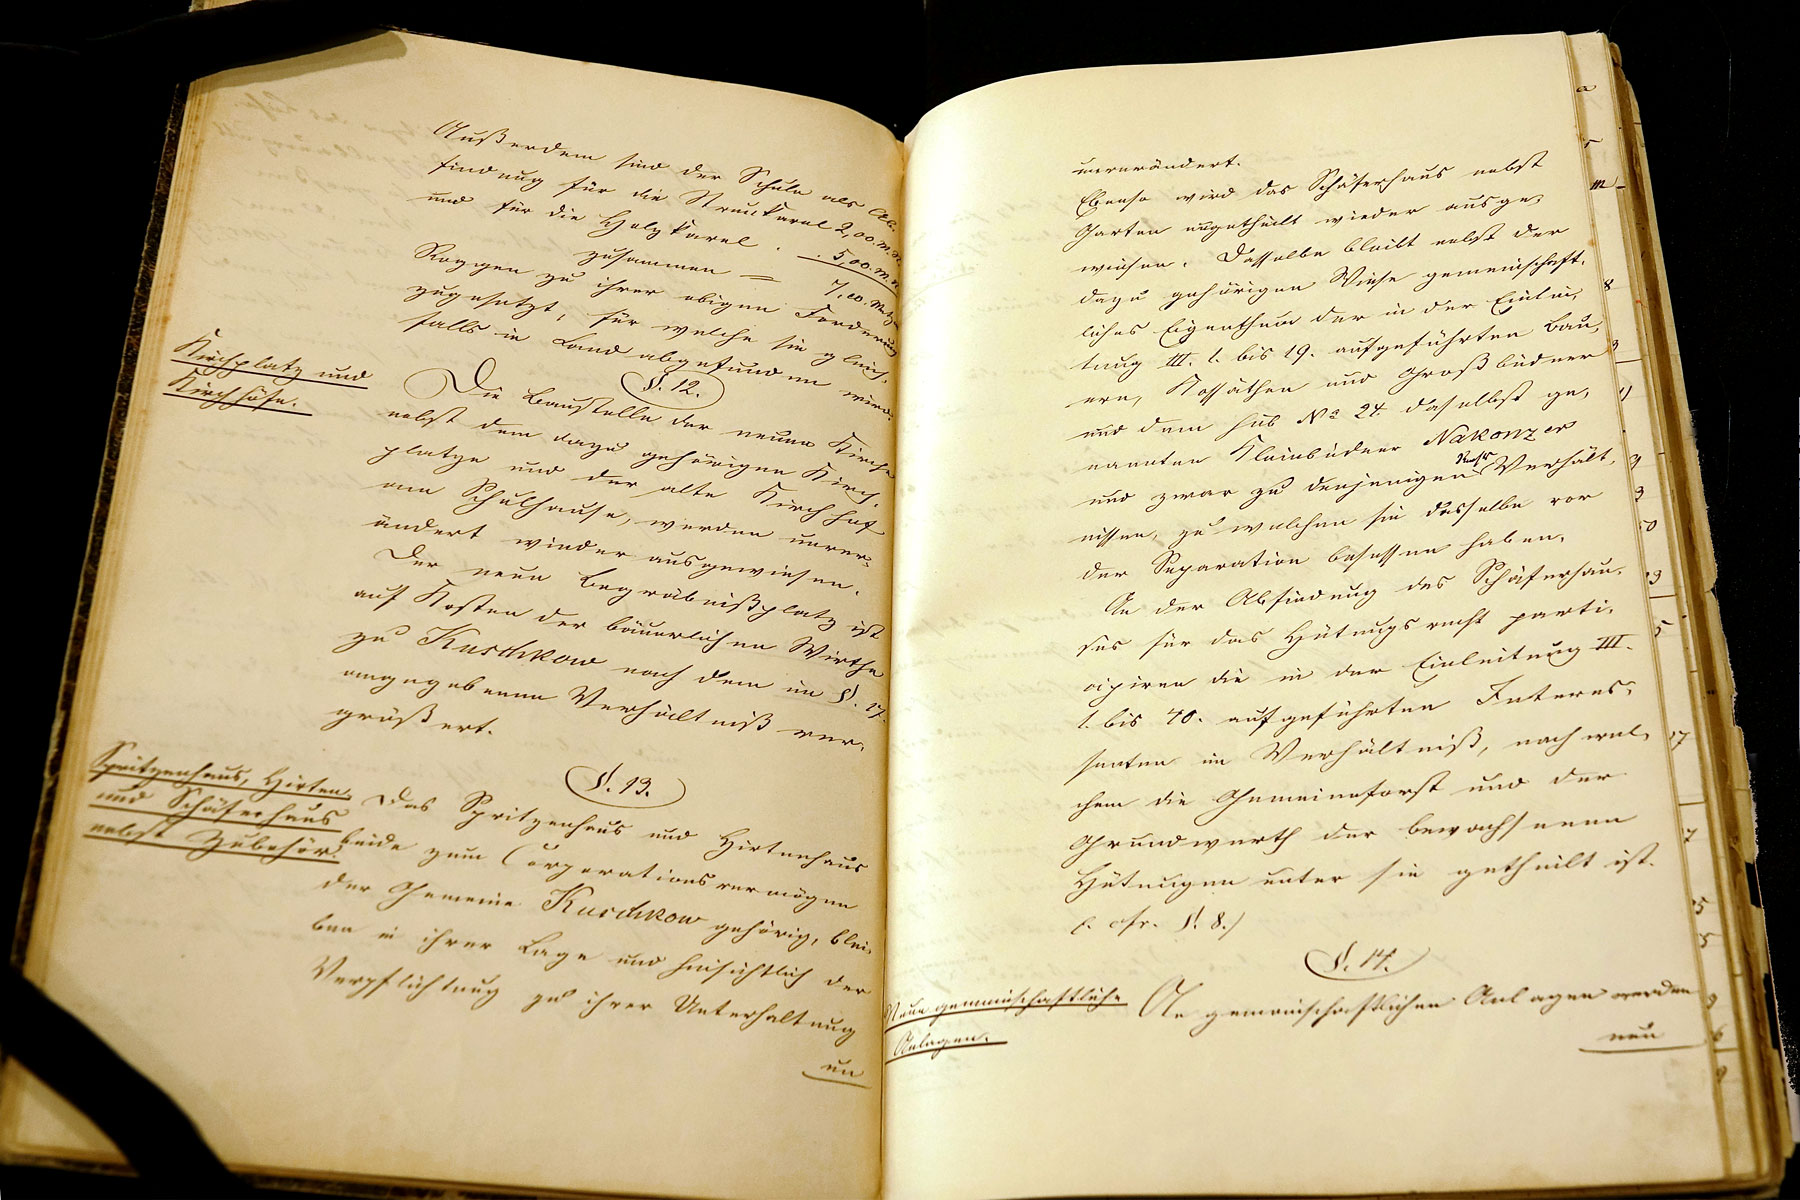 Außerdem sind der Schule als Ab-
findung für die Streukavel 2,00. M. R.
und für die Holzkavel . . 5,00. M. R.
zusammen = 7,00. Metz
Roggen zu ihrer obigen Forderung
zugesetzt, für welche sie gleich-
falls in Land abgefunden wird.
§. 12.
Kirchplatz und
Kirchhöfe.
Die Baustelle der neuen Kirche
nebst dem dazu gehörigen Kirch-
platze und der alte Kirchhof
am Schulhause, werden unver-
ändert wieder ausgewiesen.
Der neue Begräbnißplatz ist
auf Kosten der bäuerlichen Wirthe
zu Kuschkow nach dem im §. 17.
angegebenen Verhältniß ver-
größert.
§. 13.
Spritzenhaus, Hirten-
und Schäferhaus
nebst Zubehör.
Das Spritzenhaus und Hirtenhaus
beide zum Corporationsvermögen
der Gemeine Kuschkow gehörig, blei-
ben in ihrer Lage und hinsichtlich der
Verpflichtung zu ihrer Unterhaltung
un
unverändert.
Ebenso wird das Schäferhaus nebst
Garten ungetheilt wieder ausge-
wiesen. Dasselbe bleibt nebst der
dazu gehörigen Wiese gemeinschaft-
liches Eigenthum der in der Einlei-
tung III. 1. bis 19. aufgeführten Bau-
ern, Kossäthen und Großbüdner
und dem sub No 24. daselbst ge-
nannten Kleinbüdner Nakonzer
und zwar zu denjenigen Rechts Verhält-
nissen, zu welchen sie dasselbe vor
der Separation besessen haben.
An der Abfindung des Schäferhau-
ses für das Hütungsrecht parti-
cipiren die in der Einleitung III.
1. bis 40. aufgeführten Interes-
senten im Verhältniß, nach wel-
chem die Gemeineforst und der
Grundwerth der bewachsenen
Hütungen unter sie getheilt ist.
(. cfr. §. 8.)
§. 14.
Neue gemeinschaftliche
Anlagen.
An gemeinschaftlichen Anlagen werden
neu